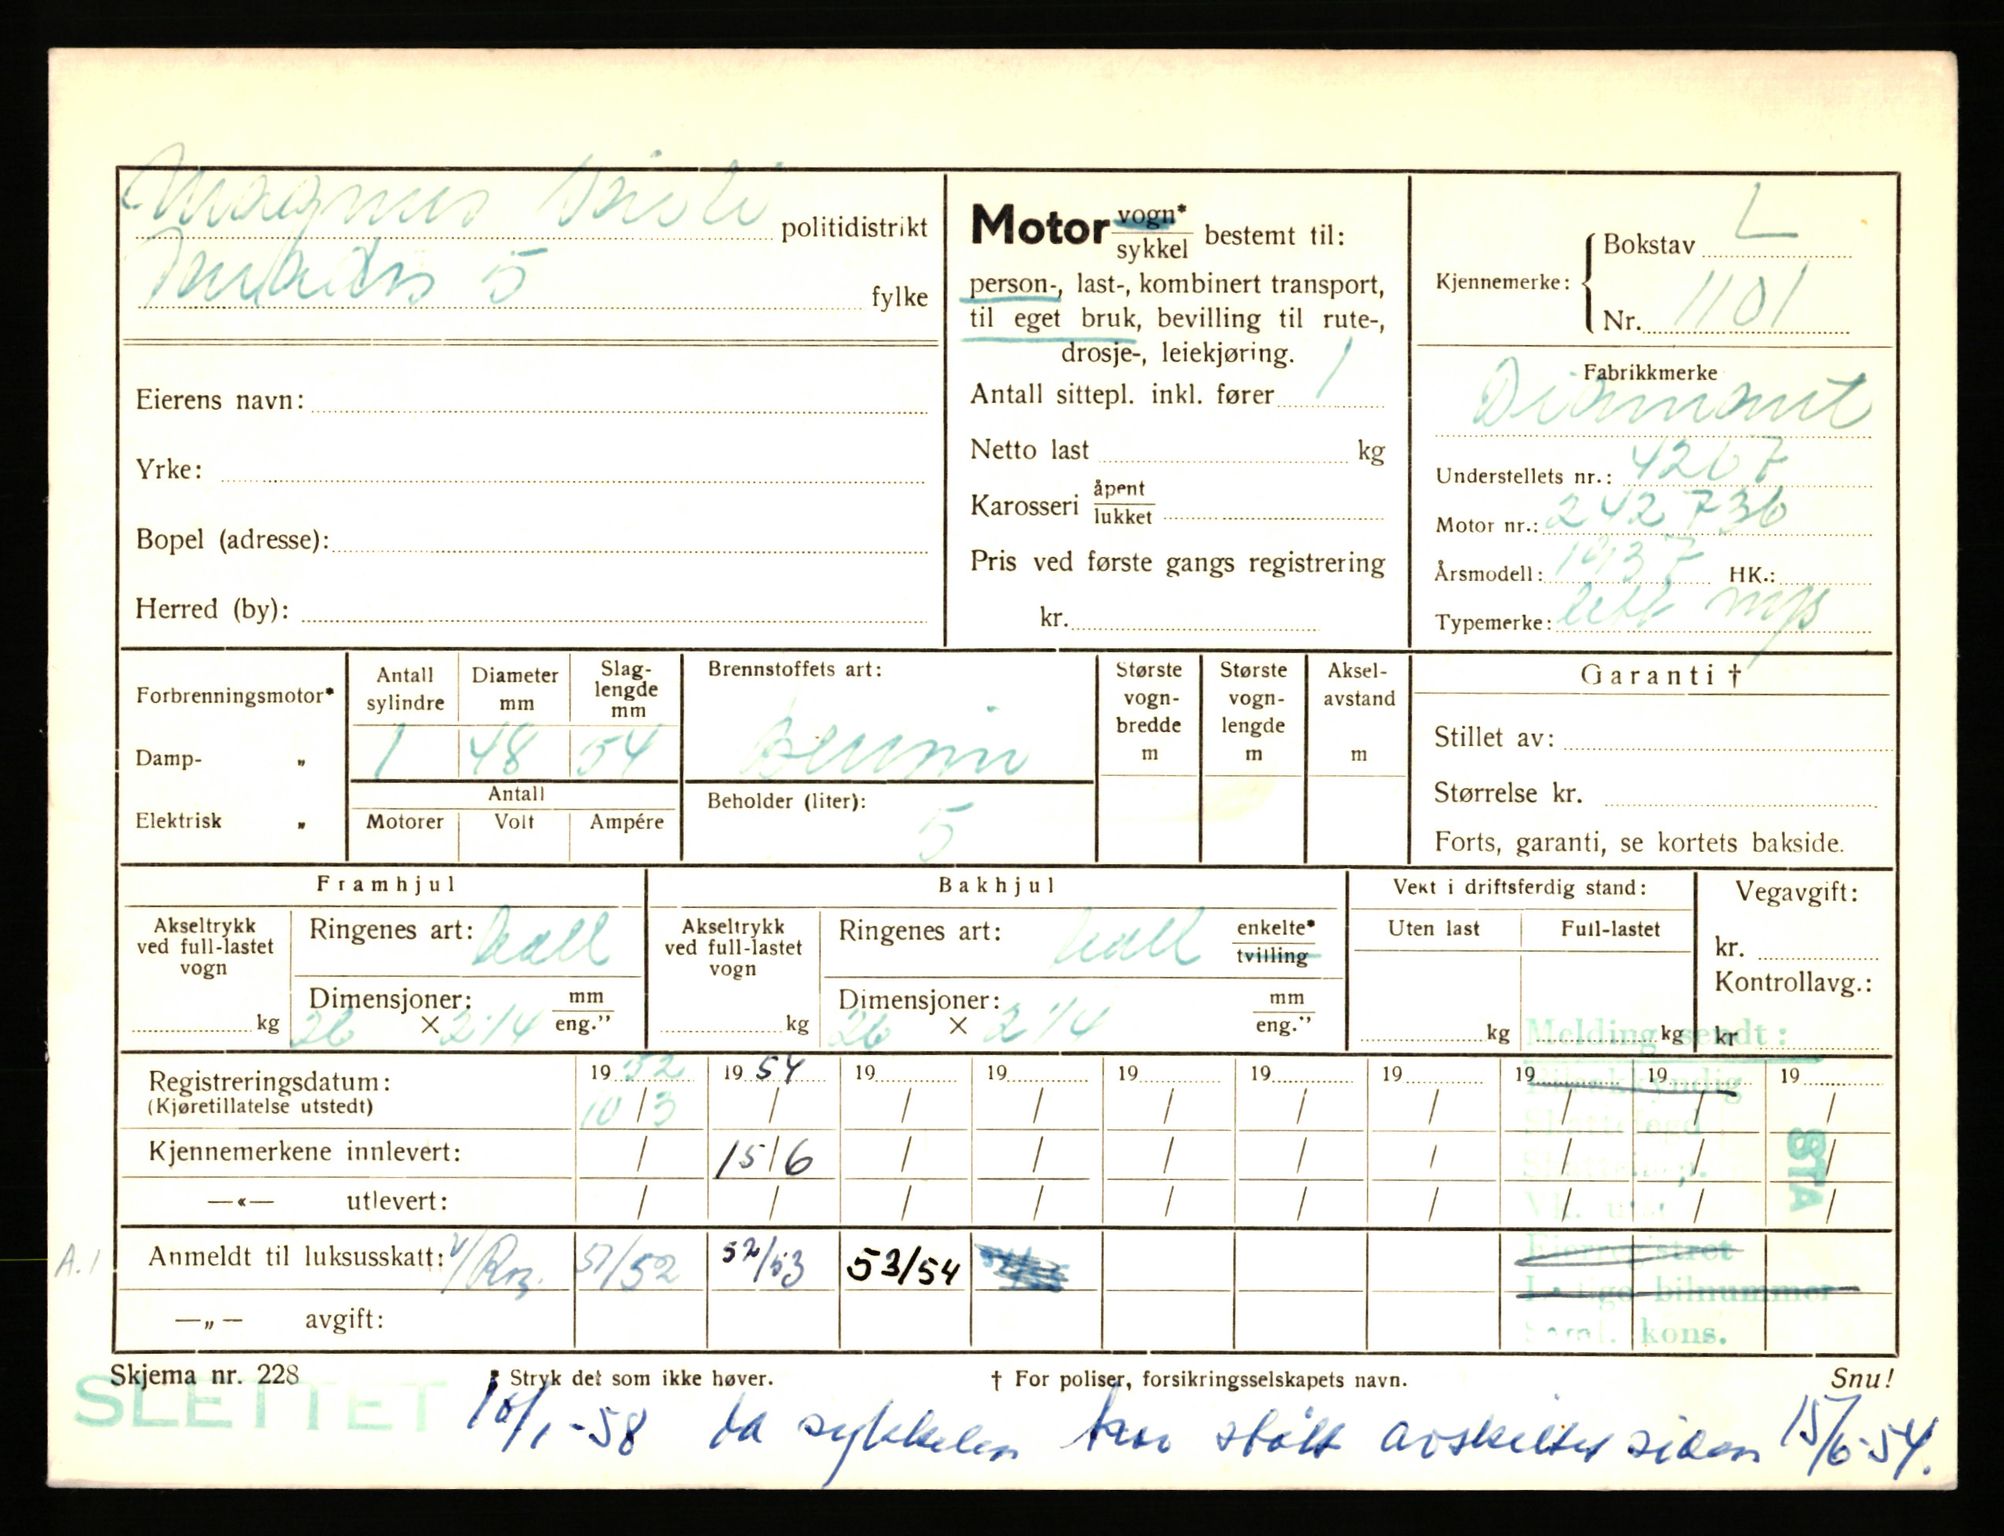 Magnus
5
politidistrikt
fylke
Eierens navn:
Yrke:
Bopel (adresse):
Herred (by):
Motor vogn* sykkel bestemt til:
person-, last-, kombinert transport,
til eget bruk, bevilling til rute-,
drosje-, leiekjøring.
Antall sittepl. inkl. fører 1
Netto last kg
Karosseri åpent lukket
Pris ved første gangs registrering
kr.
Kjennemerke: Bokstav L
Nr. 1101
Fabrikkmerke
Diamant
Understellets nr.: 4267
Motor nr.: 242736
Årsmodell: 1937 HK.:
Typemerke: lett
Forbrenningsmotor*
Damp- „
Elektrisk „
Antall sylindre Diameter mm Slag-lengde mm
1 48 54
Antall
Motorer Volt Ampére
Brennstoffets art:
bensin
Beholder (liter):
5
Største vogn-bredde m
Største vogn-lengde m
Aksel-avstand m
Garanti †
Stillet av:
Størrelse kr.
Forts, garanti, se kortets bakside.
Framhjul
Akseltrykk ved full-lastet vogn
kg
Ringenes art: ball
Dimensjoner: mm eng."
26 × 2 1/4
Bakhjul
Akseltrykk ved full-lastet vogn
kg
Ringenes art: ball enkelte* tvilling
Dimensjoner: mm eng."
26 × 2 1/4
Vekt i driftsferdig stand:
Uten last Full-lastet
kg kg
Vegavgift:
kr.
Kontrollavg.:
kr
Melding sendt:
Registreringsdatum: 19 52 19 54 19 19 19 19 19 19 19 19
(Kjøretillatelse utstedt) 10/3 / / / / / / / / /
Kjennemerkene innlevert: / 15/6 / / / / / / / /
—«— utlevert: / / / / / / / / / /
STA
A.1 Anmeldt til luksusskatt: 51/52 52/53 53/54
—„— avgift:
bilnummer
kons.
Skjema nr. 228 * Stryk det som ikke høver. † For poliser, forsikringsselskapets navn. Snu!
SLETTET
10/1-58 da sykkelen har stått avskiltet siden 15/6-54.